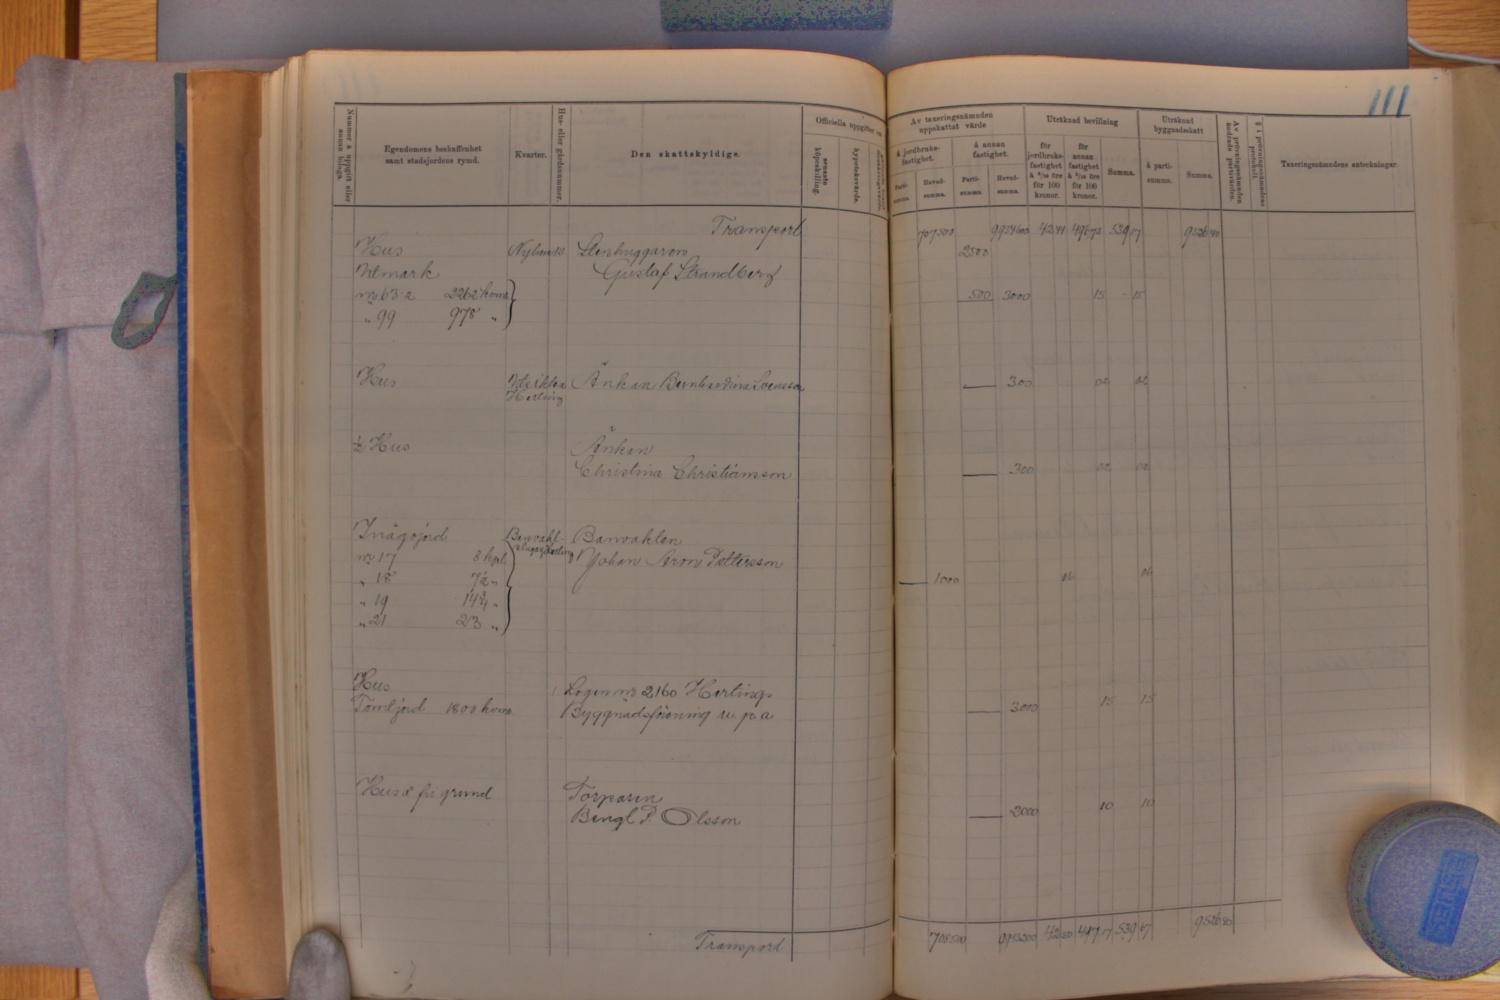 111
Nummer å uppgift eller annan bilaga.
Egendomens beskaffenhet samt stadsjordens rymd.
Kvarter.
Hus- eller gårdsnummer.
Den skattskyldige.
Officiella uppgifter om
senaste köpeskilling.
hypoteksvärde.
Av taxeringsnämnden uppskattat värde
å jordbruksfastighet.
å annan fastighet.
Parti-summa.
Huvud-summa.
Parti-summa.
Huvud-summa.
Uträknad bevillning
för jordbruks-fastighet å 6/10 öre för 100 kronor.
för annan fastighet å 5/10 öre för 100 kronor.
Summa.
Uträknad byggnadsskatt
å parti-summa.
Summa.
Av prövningsnämnden ändrade partivärden.
Taxeringsnämndens anteckningar.
Transport 707500
Hus Stenhuggaren 2500
Utmark Gustaf Strandberg
no 63-2 2262 kvm 500 3000 15 15
" 99 978 "
Hus Änkan Bernhardina Svensson 300 02 02
Herting
½ Hus Änkan
Christina Christiansson 300 02 02
Inägojord Banvakten
no 17 8 kpl Johan Aron Pettersson
" 18 7½ " 1000 06 06
" 19 14¾ "
" 21 23 "
Hus Logen no 2160 Hertings
Tomtjord 1800 kvm Byggnadsförening u. p. a 3000 15 15
Hus å fri grund Torparen
Bengt P. Olsson 2000 10 10
Transport 708500